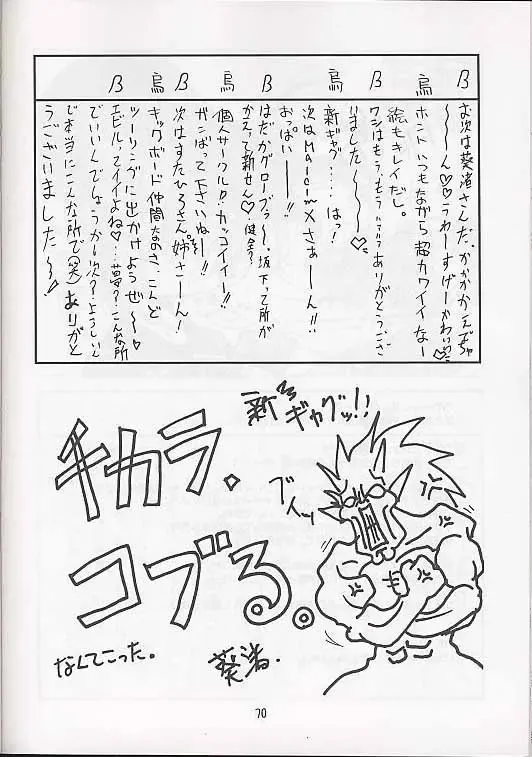 β お次は葵渚さんだ、かかかかえぇちゃ
〜〜ん♡♡うわーすげーかわいい♡
烏 ホントいつもながら超カワイイなー
絵もキレイだし。
β ワシはもう、もう
ありがとうござ
いました〜〜♡
烏 新ギャグ‥‥はっ!
次はMalcimXさぁーん!!
おっぱいーー!!
β はだかグローブぅ〜、坂下って所が
かえって新せん♡(健全?)
烏 個人サークルD・カッコイイー!!
ガンばって下さいねー!!
β 次はすたひろさん、姉さーん!
烏 キックボード仲間なのさ、こんど
ツーリングに出かけようぜ〜〜♡
β エビルってイイよね♡‥夢?‥こんな所
でいいんでしょうか?次?‥ようしいん
で本当にこんな所で(笑)ありがと
うございました〜〜!
新ギャグッ!!
チカラ、
コブる。
ブイッ
なんてこった。
葵渚.
70